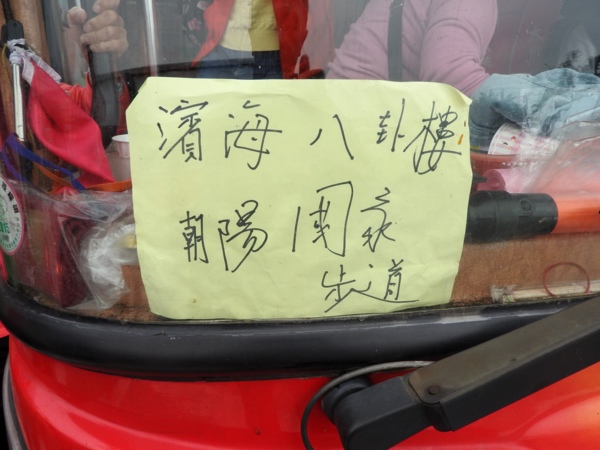 濱海 八卦樓
朝陽 國家
步道